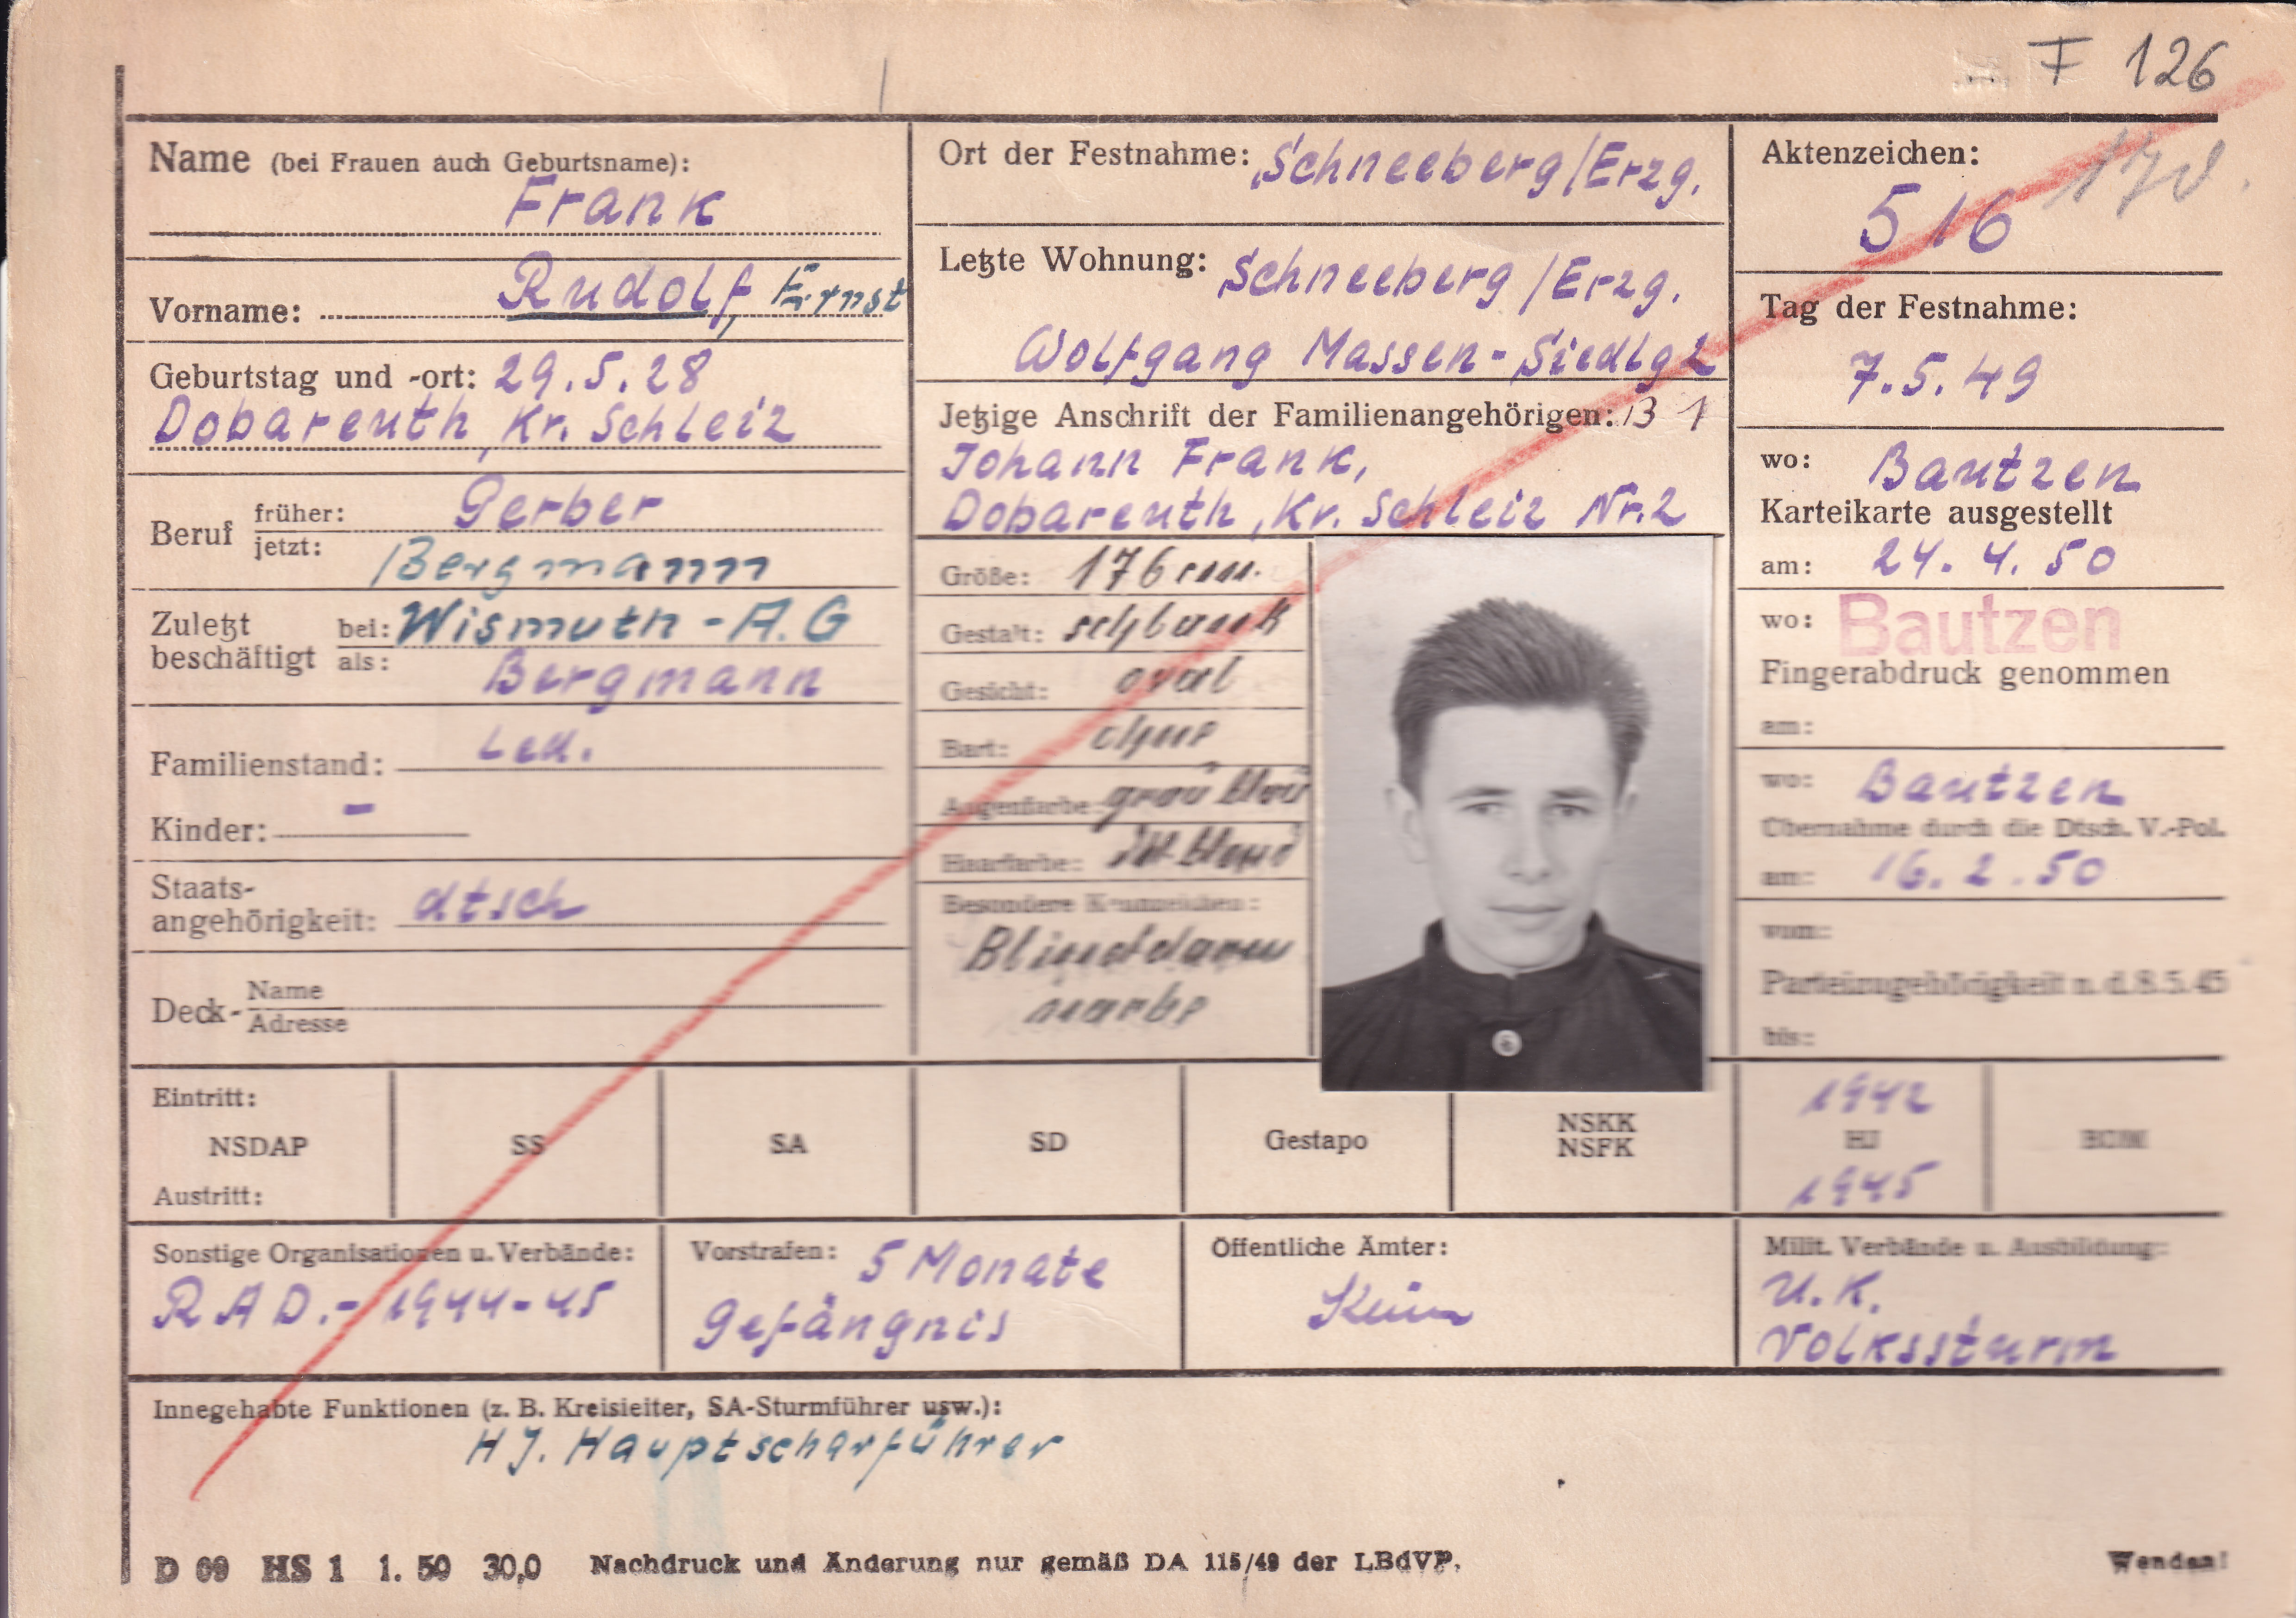 F 126
Name (bei Frauen auch Geburtsname):
Frank
Vorname: Rudolf, Ernst
Geburtstag und -ort: 29.5.28
Dobareuth, Kr. Schleiz
Beruf früher: Gerber
jetzt: Bergmann
Zuletzt beschäftigt bei: Wismuth-A.G
als: Bergmann
Familienstand: Led.
Kinder: -
Staats-
angehörigkeit: dtsch
Deck- Name
Adresse
Ort der Festnahme: Schneeberg/Erzg.
Letzte Wohnung: Schneeberg/Erzg.
Wolfgang Massen-Siedlg
Jetzige Anschrift der Familienangehörigen: 131
Johann Frank,
Dobareuth, Kr. Schleiz Nr. 2
Größe: 176 cm.
Gestalt: schlank
Gesicht: oval
Bart: ohne
Augenfarbe: grau blau
Haarfarbe: dkl. blond
Besondere Kennzeichen:
Blinddarm
narbe
Aktenzeichen:
516
Tag der Festnahme:
7.5.49
wo: Bautzen
Karteikarte ausgestellt
am: 24.4.50
wo: Bautzen
Fingerabdruck genommen
am:
wo: Bautzen
Übernahme durch die Dtsch. V.-Pol.
am: 16.2.50
vom:
Parteizugehörigkeit n. d. 8.5.45
bis:
Eintritt:
NSDAP SS SA SD Gestapo NSKK
NSFK
Austritt:
1942
HJ
1945
BDM
Sonstige Organisationen u. Verbände:
RAD.- 1944-45
Vorstrafen: 5 Monate
Gefängnis
Öffentliche Ämter:
Keine
Milit. Verbände u. Ausbildung:
U.K.
Volkssturm
Innegehabte Funktionen (z. B. Kreisleiter, SA-Sturmführer usw.):
HJ. Hauptscharführer
D 09 HS 1 1. 50 30,0 Nachdruck und Änderung nur gemäß DA 115/49 der LBdVP.
Wenden!